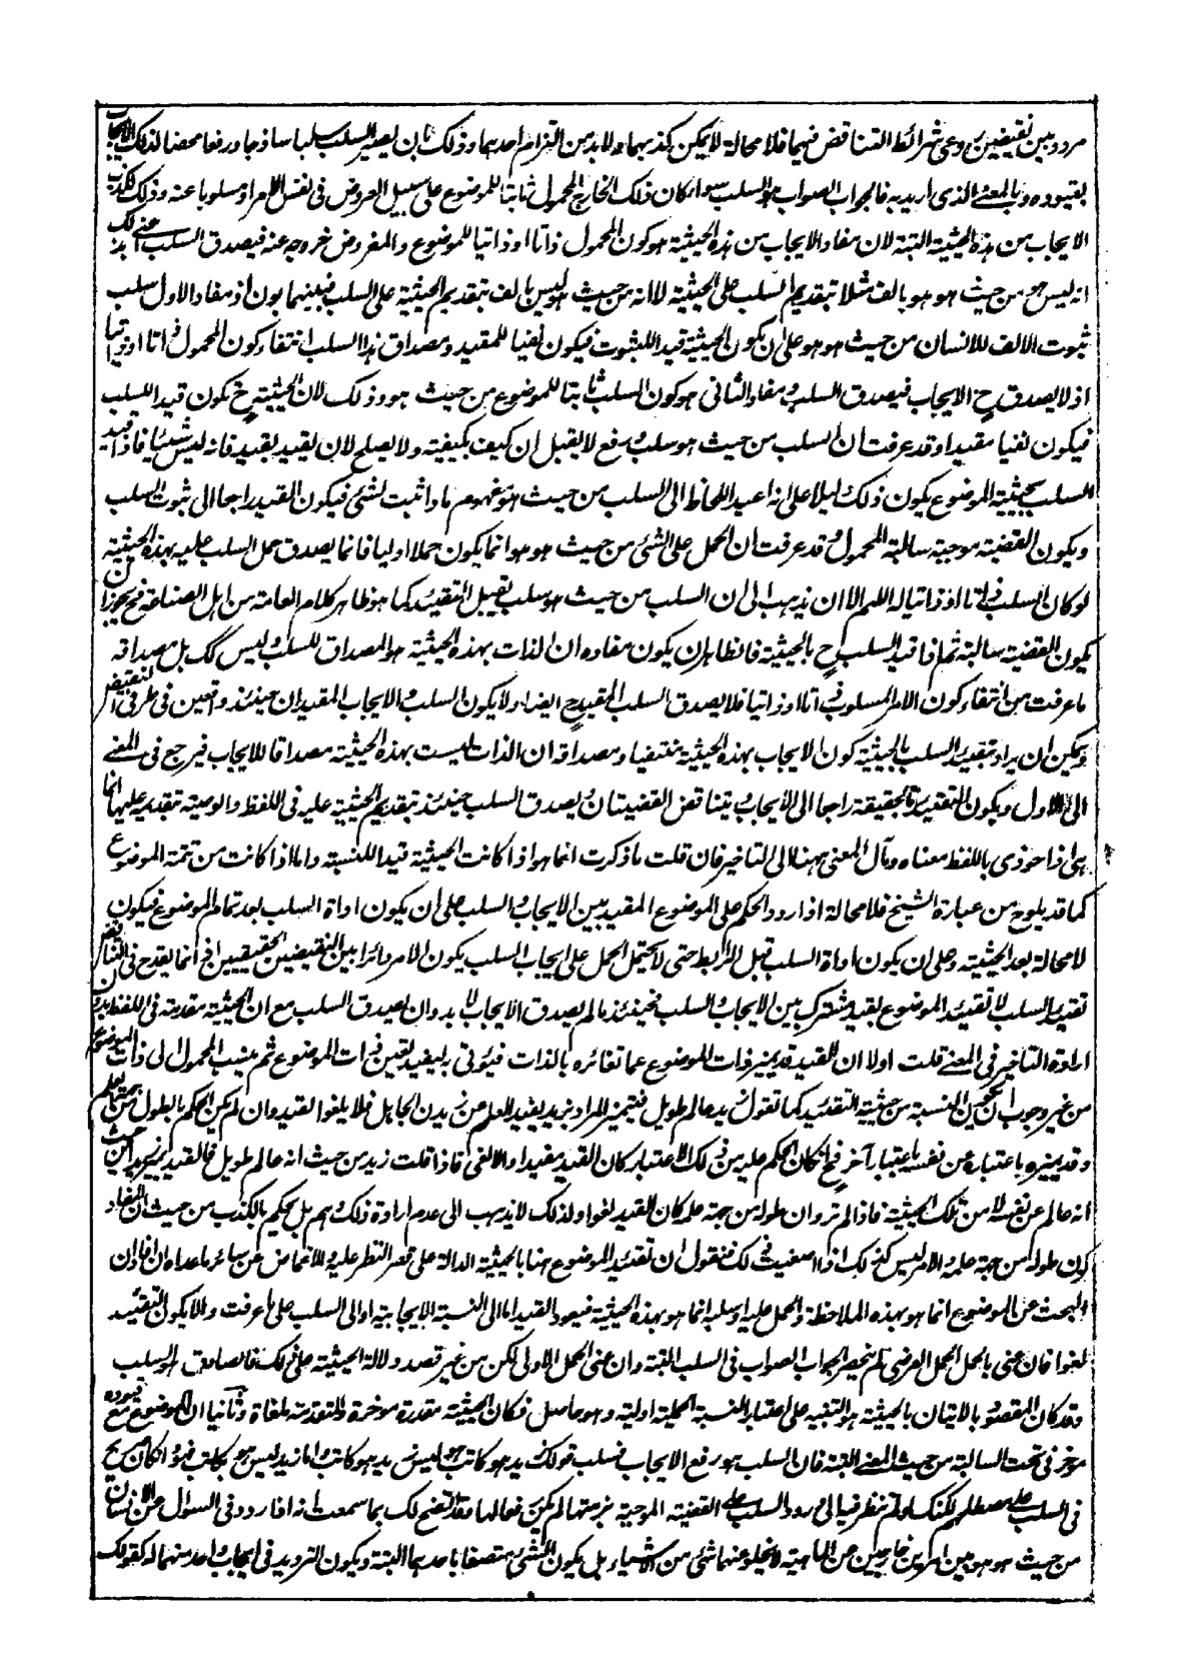 مردد بين نقيضين روعي شرائط التناقض فيهما فلا محالة لا يمكن كذبهما ولا بد من التزام احدهما وذلك بان يصير السلب سلبا ساذجا ورفعا محضا لذلك الايجاب
بقيوده وبالمعنى الذى اريد به فالجواب الصواب هو السلب سواء كان ذلك الخارج المحمول ثابتا للموضوع على سبيل العروض فى نفس الامر او مسلوبا عنه وذلك لكذب
الايجاب من هذه الحيثية البتة لان مفاد الايجاب من هذه الحيثية هو كون المحمول ذاتا او ذاتيا للموضوع والمفروض خروجه عنه فيصدق السلب
انه ليس هو من حيث هو هو بالف مثلا بتقديم السلب على الحيثية لا انه من حيث هو ليس بالف بتقديم الحيثية على السلب فبينهما بون اذ مفاد الاول سلب
ثبوت الالف للانسان من حيث هو هو على ان يكون الحيثية قيدا للثبوت فيكون نفيا للمقيد ومصداق هذا السلب انتفاء كون المحمول ذاتا او ذاتيا
اذ لا يصدق ح الايجاب فيصدق السلب ومفاد الثانى هو كون السلب ثابتا للموضوع من حيث هو وذلك لان الحيثية ح تكون قيدا للسلب
فيكون نفيا مقيدا وقد عرفت ان السلب من حيث هو سلب ورفع لا يقبل ان يكيف بكيفية ولا يصلح لان يقيد بقيد فانه ليس شيئا فاذا قيد
السلب بحيثية الموضوع يكون ذلك دليلا على انه اعيد اللحاظ الى السلب من حيث هو مفهوم ما واثبت لشئ فيكون القيد راجعا الى ثبوت السلب
ويكون القضية موجبة سالبة المحمول وقد عرفت ان الحمل على الشئ من حيث هو هو انما يكون حملا اوليا فانما يصدق حمل السلب عليه بهذه الحيثية
لو كان السلب ذاتا او ذاتيا له اللهم الا ان يذهب الى ان السلب من حيث هو سلب يقبل التقييد كما هو ظاهر كلام العامة من اهل الصناعة فح يجوز ان
يكون القضية سالبة ثم اذا قيد السلب ح بالحيثية فالظاهر ان يكون مفاده ان الذات بهذه الحيثية هو المصداق للسلب وليس كك بل مصداقه
ما عرفت من انتفاء كون الامر المسلوب ذاتا او ذاتيا فلا يصدق السلب المقيد ح ايضا ولا يكون السلب والايجاب المقيدان حينئذ واقعين فى طرفى النقيض
ويمكن ان يراد بتقييد السلب بالحيثية كون الايجاب بهذه الحيثية منتفيا ومصداقه ان الذات ليست بهذه الحيثية مصداقا للايجاب فيرجع فى المعنى
الى الاول ويكون التقييد فى الحقيقة راجعا الى الايجاب ويتناقض القضيتان ويصدق السلب حينئذ بتقديم الحيثية عليه فى اللفظ والوصية بتقديمه عليها انما
هى اذا حوذى باللفظ معناه ومآل المعنى ههنا الى التاخير فان قلت ما ذكرت انما هو اذا كانت الحيثية قيدا للنسبة واما اذا كانت من تتمة الموضوع
كما قد يلوح من عبارة الشيخ فلا محالة اذا ردد الحكم على الموضوع المقيد بين الايجاب والسلب على ان يكون اداة السلب بعد تمام الموضوع فيكون
لا محالة بعد الحيثية وعلى ان يكون اداة السلب قبل الرابط حتى لا يحتمل الحمل على ايجاب السلب يكون الامر دائرا بين النقيضين الحقيقيين اذ انما يقدح فى التناقض
تقييد السلب لا تقييد الموضوع بقيد مشترك بين الايجاب والسلب فحينئذ ما لم يصدق الايجاب لا بد وان يصدق السلب مع ان الحيثية مقدمة فى اللفظ بدون
ارادة التاخير فى المعنى قلت اولا ان القيد قد يميز ذات الموضوع عما تغائره بالذات فيؤتى به ليفيد تعين ذات الموضوع ثم ينسب المحمول الى ذات الموضوع
من غير وجوب ان يكون النسبة من حيثية التقييد كما تقول زيد عالم طويل فيتميز المراد بزيد بقيد العلم عن زيدن الجاهل فلا يلغو القيد وان لم يكن الحكم بالطول من جهة العلم
وقد يميزه باعتباره عن نفسه باعتبار آخر فح ان كان الحكم عليه من ذلك الاعتبار كان القيد مفيدا والا لغى فاذا قلت زيد من حيث انه عالم طويل فالقيد يميز زيدا من حيث
انه عالم عن نفسه لا من تلك الحيثية فاذا لم ترد ان طوله من جهة علمه كان القيد لغوا ولذلك لا يذهب الى عدم ارادة ذلك وهم بل يحكم بالكذب من حيث ان المفاد
كون طوله من جهة علمه والامر ليس كذلك اذا اصغيت ذلك فنقول ان تقييد الموضوع هنا بالحيثية الدالة على قصر النظر عليه والاغماض عن سائر ما عداه ايذان بان
البحث عن الموضوع انما هو بهذه الملاحظة والحمل عليه او سلبه انما هو بهذه الحيثية فيعود القيد اما الى النسبة الايجابية او الى السلب على ما عرفت والا يكون التقييد
لغوا فان عنى بالحمل الحمل العرضى لم ينحصر الجواب الصواب فى السلب البتة وان عنى الحمل الاولى لكن من غير قصد دلالة الحيثية على ذلك فالصادق هو السلب
وقد كان المقصود بالاتيان بالحيثية هو التنبيه على اعتبار النسبة الحملية اولية وهو حاصل فكان الحيثية مقدرة موخرة والمتقدمة ملغاة وثانيا ان الموضوع مع قيوده
موخر فى تحت السالبة من حيث المعنى البتة فان السلب هو رفع الايجاب فسلب قولك زيد هو كاتب هو ليس زيد هو كاتب اما زيد ليس هو بكاتب فهو وان كان صح
فى السلب على مصطلحهم لكنك لو لم تنظر فيها الى ورود السلب على القضية الموجبة برمتها لم يكن رفعا لها وقد اتضح لك بما سمعت انه اذا ردد فى السؤال عن الانسان
من حيث هو هو بين امرين خارجين عن الماهية لا يخلو عنهما شئ من الاشياء بل يكون الشئ متصفا باحدهما البتة ويكون الترديد فى ايجاب واحد منهما له كقولك